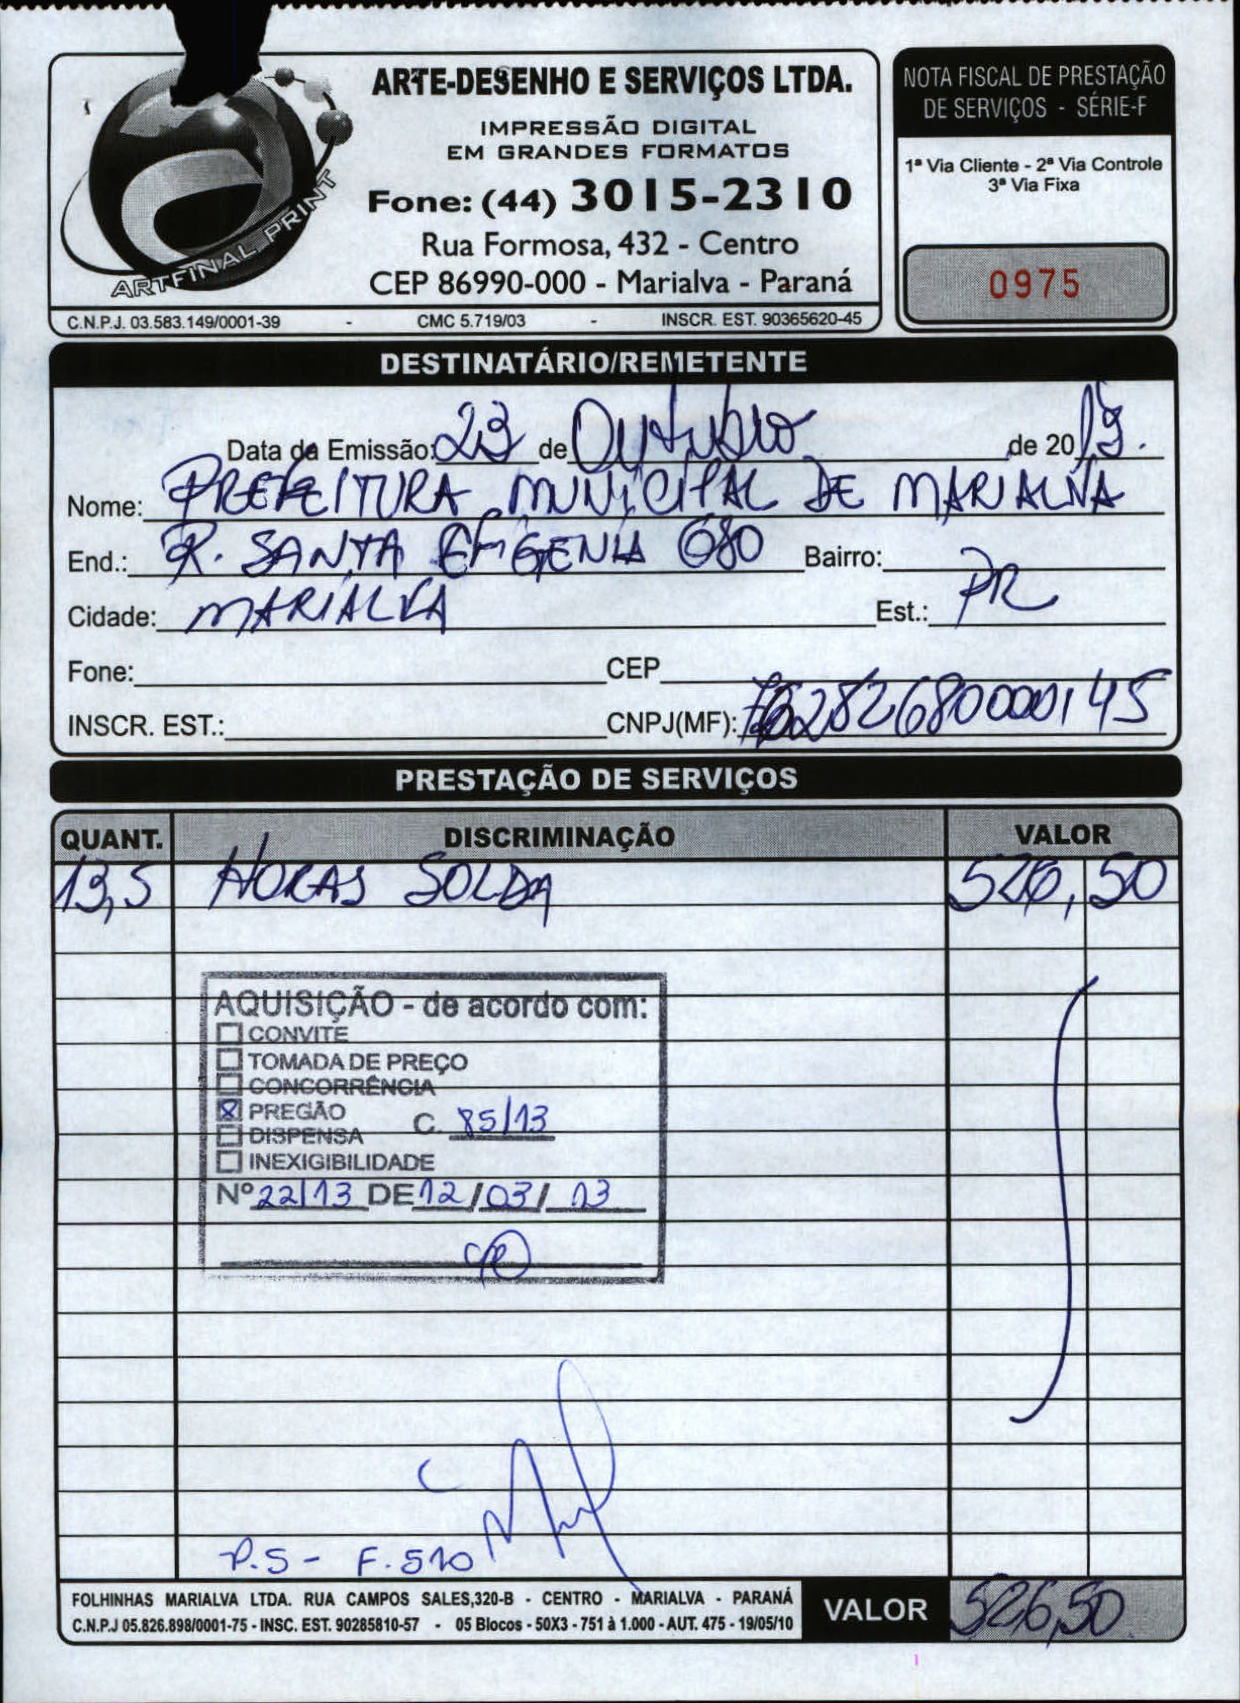 ARTE-DESENHO E SERVIÇOS LTDA.
IMPRESSÃO DIGITAL
EM GRANDES FORMATOS
Fone: (44) 3015-2310
Rua Formosa, 432 - Centro
CEP 86990-000 - Marialva - Paraná
ARTFINAL PRINT
C.N.P.J. 03.583.149/0001-39 - CMC 5.719/03 - INSCR. EST. 90365620-45
NOTA FISCAL DE PRESTAÇÃO
DE SERVIÇOS - SÉRIE-F
1ª Via Cliente - 2ª Via Controle
3ª Via Fixa
0975
DESTINATÁRIO/REMETENTE
Data da Emissão: 23 de Outubro de 2013.
Nome: PREFEITURA MUNICIPAL DE MARIALVA
End.: R. SANTA EFIGENIA 680 Bairro:
Cidade: MARIALVA Est.: PR
Fone: CEP
INSCR. EST.: CNPJ(MF): 76282680000145
PRESTAÇÃO DE SERVIÇOS
QUANT. DISCRIMINAÇÃO VALOR
13,5 HORAS SOLDA 526,50
AQUISIÇÃO - de acordo com:
CONVITE
TOMADA DE PREÇO
CONCORRÊNCIA
PREGÃO C. 85/13
DISPENSA
INEXIGIBILIDADE
Nº 22/13 DE 12/03/13
P.S - F. 510
FOLHINHAS MARIALVA LTDA. RUA CAMPOS SALES,320-B - CENTRO - MARIALVA - PARANÁ
C.N.P.J 05.826.898/0001-75 - INSC. EST. 90285810-57 - 05 Blocos - 50X3 - 751 à 1.000 - AUT. 475 - 19/05/10
VALOR 526,50